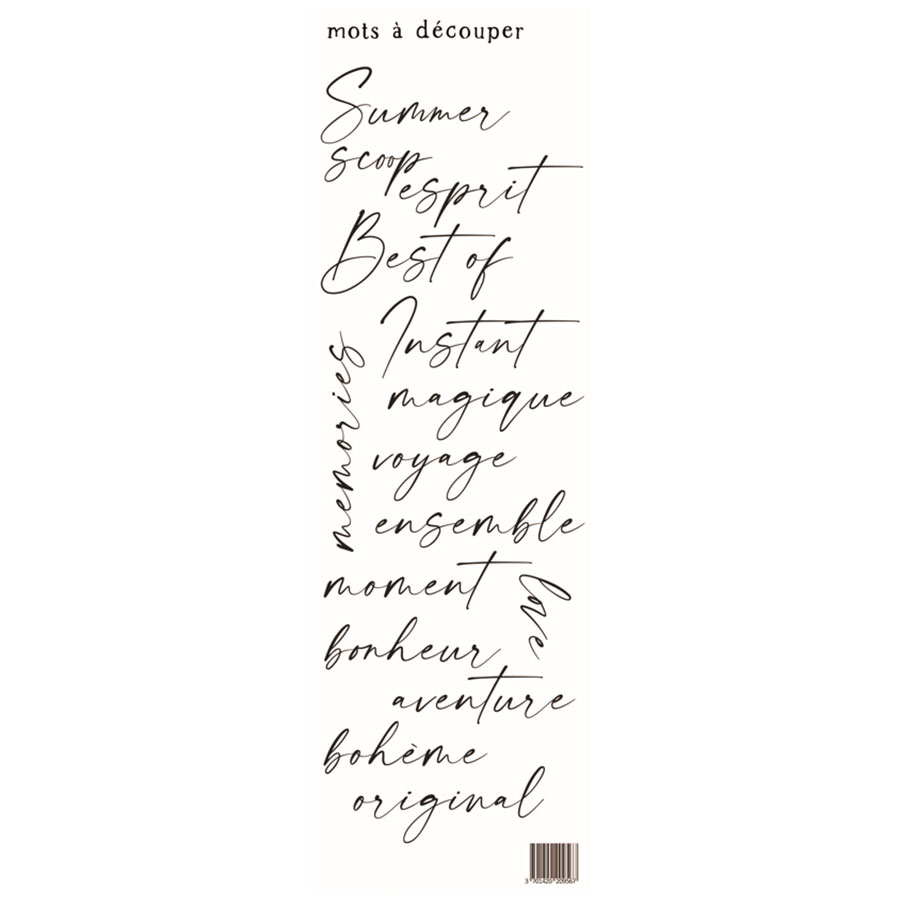 mots à découper
Summer
scoop
esprit
Best of
Instant
memories
magique
voyage
ensemble
moment
love
bonheur
aventure
bohème
original
3 701420 209567